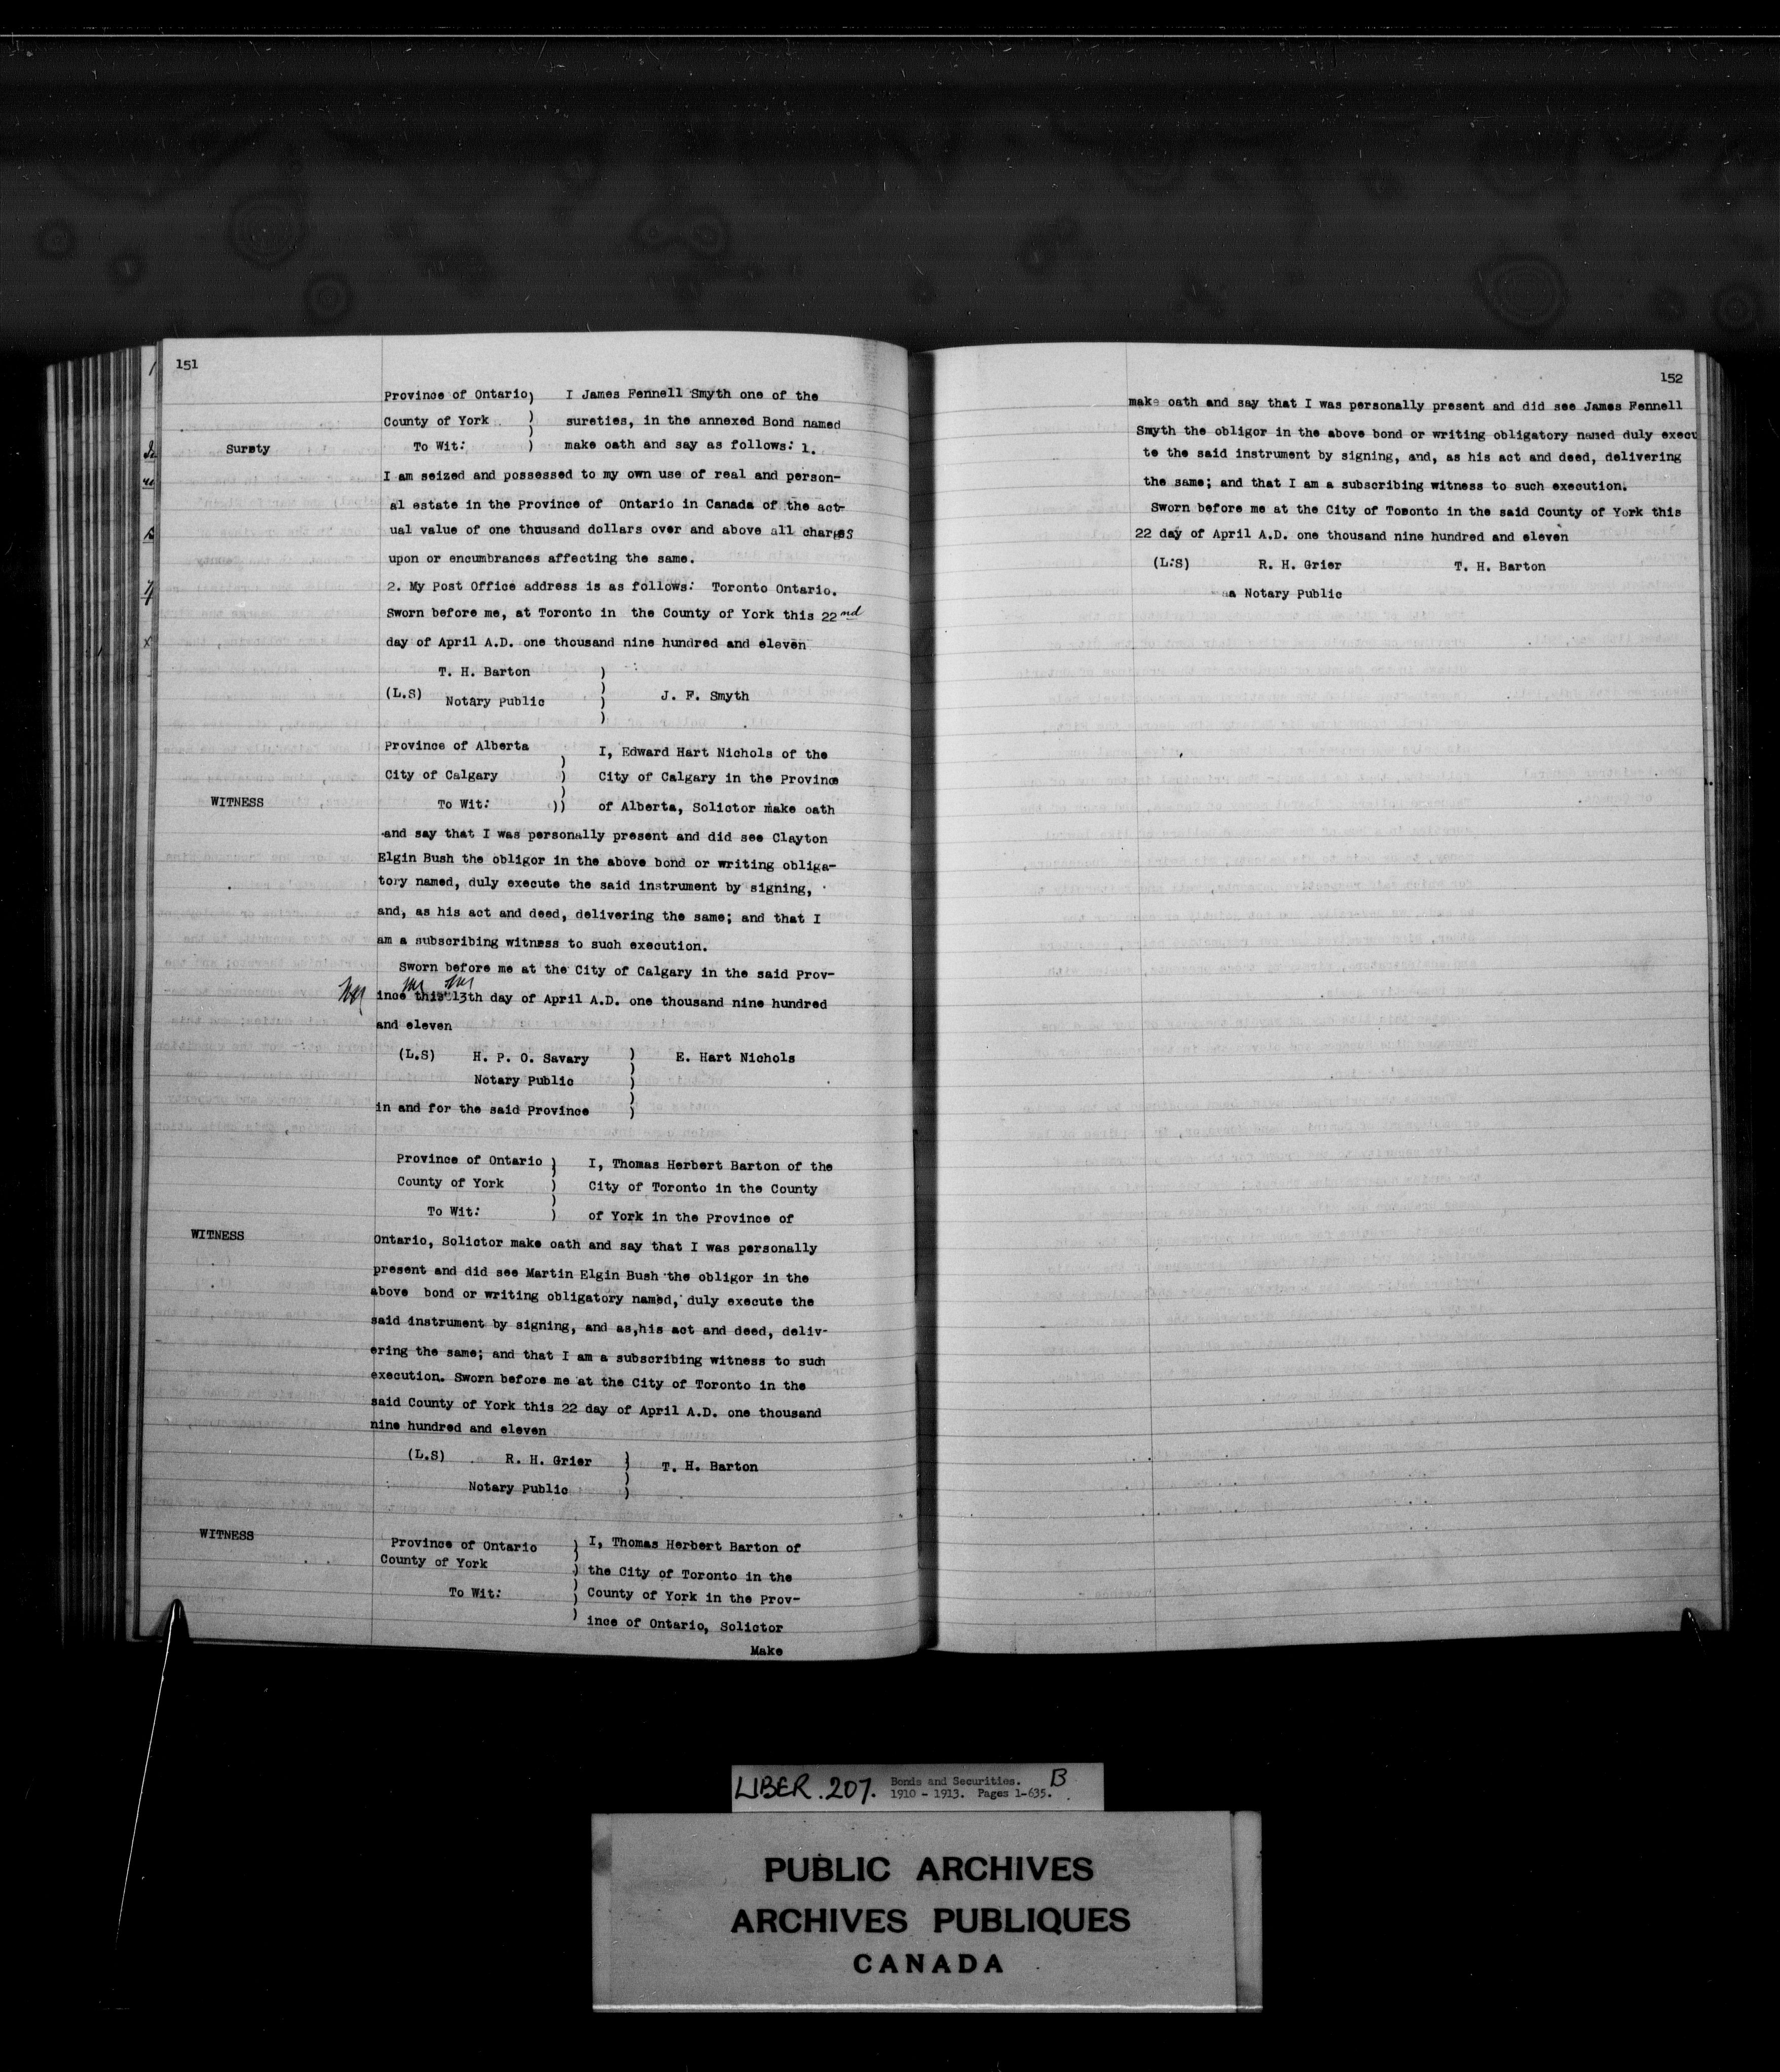 151
Province of Ontario) I James Fennell Smyth one of the
County of York ) sureties, in the annexed Bond named
Surety To Wit: ) make oath and say as follows: 1.
I am seized and possessed to my own use of real and person-
al estate in the Province of Ontario in Canada of the act-
ual value of one thousand dollars over and above all charges
upon or encumbrances affecting the same.
2. My Post Office address is as follows: Toronto Ontario.
Sworn before me, at Toronto in the County of York this 22nd
day of April A.D. one thousand nine hundred and eleven
T. H. Barton )
(L.S) Notary Public ) J. F. Smyth
Province of Alberta I, Edward Hart Nichols of the
City of Calgary ) City of Calgary in the Province
WITNESS To Wit: )) of Alberta, Solictor make oath
and say that I was personally present and did see Clayton
Elgin Bush the obligor in the above bond or writing obliga-
tory named, duly execute the said instrument by signing,
and, as his act and deed, delivering the same; and that I
am a subscribing witness to such execution.
Sworn before me at the City of Calgary in the said Prov-
ince this 13th day of April A.D. one thousand nine hundred
and eleven
(L.S) H. P. O. Savary ) E. Hart Nichols
Notary Public )
in and for the said Province )
Province of Ontario ) I, Thomas Herbert Barton of the
County of York ) City of Toronto in the County
To Wit: ) of York in the Province of
WITNESS Ontario, Solictor make oath and say that I was personally
present and did see Martin Elgin Bush the obligor in the
above bond or writing obligatory named, duly execute the
said instrument by signing, and as,his act and deed, deliv-
ering the same; and that I am a subscribing witness to such
execution. Sworn before me at the City of Toronto in the
said County of York this 22 day of April A.D. one thousand
nine hundred and eleven
(L.S) R. H. Grier ) T. H. Barton
Notary Public )
WITNESS Province of Ontario ) I, Thomas Herbert Barton of
County of York ) the City of Toronto in the
To Wit: ) County of York in the Prov-
ince of Ontario, Solictor
Make
152
make oath and say that I was personally present and did see James Fennell
Smyth the obligor in the above bond or writing obligatory named duly execu
te the said instrument by signing, and, as his act and deed, delivering
the same; and that I am a subscribing witness to such execution.
Sworn before me at the City of Toronto in the said County of York this
22 day of April A.D. one thousand nine hundred and eleven
(L:S) R. H. Grier T. H. Barton
a Notary Public
LIBER.207. Bonds and Securities. B
1910 - 1913. Pages 1-635.
PUBLIC ARCHIVES
ARCHIVES PUBLIQUES
CANADA